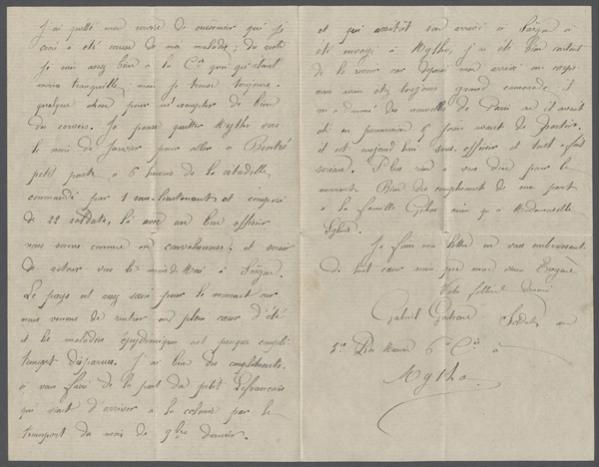 J'ai quitté mon service de cuisinier qui je
crois a été cause de ma maladie; du reste
je suis assez bien à la Cie quoi qu'étant
moins tranquille, mais je trouve toujours
quelque chose pour m'exempter de bien
du service. Je pense quitter Mytho vers
le mois de Janvier pour aller à Bentré
petit poste à 6 heures de la citadelle
commandé par 1 sous-lieutenant et composé
de 22 soldats, là avec un bon officier
nous serons comme en convalescence; et
de retour vers le mois de Mai à Saïgon.
Le pays est assez sain pour le moment car
nous venons de rentrer en plein cœur d'été
et les maladies épidémiques ont presque complè-
tement disparues. J'ai bien des compliments
à vous faire de la part du petit Lefrançois
qui vient d'arriver à la colonie par le
transport du mois de 9bre dernier.
et qui aussitôt son arrivée à Saïgon a
été envoyé à Mytho, j'ai été bien content
de le revoir car depuis mon arrivée au corps
nous avons été toujours grand camarade, il
m'a donné des nouvelles de Paris où il avait
été en permission 6 jours avant de partir.
il est aujourd'hui sous-officier et tout-à-fait
sérieux. Plus rien à vous dire pour le
moment. Bien des compliments de ma part
à la famille ainsi qu'à Mademoiselle
Je finis ma lettre en vous embrassant
de tout cœur ainsi que mon vieux
Votre fils dévoué
Gabriel Soldat au
5e Rég Marine 6e Cie à
Mytho.